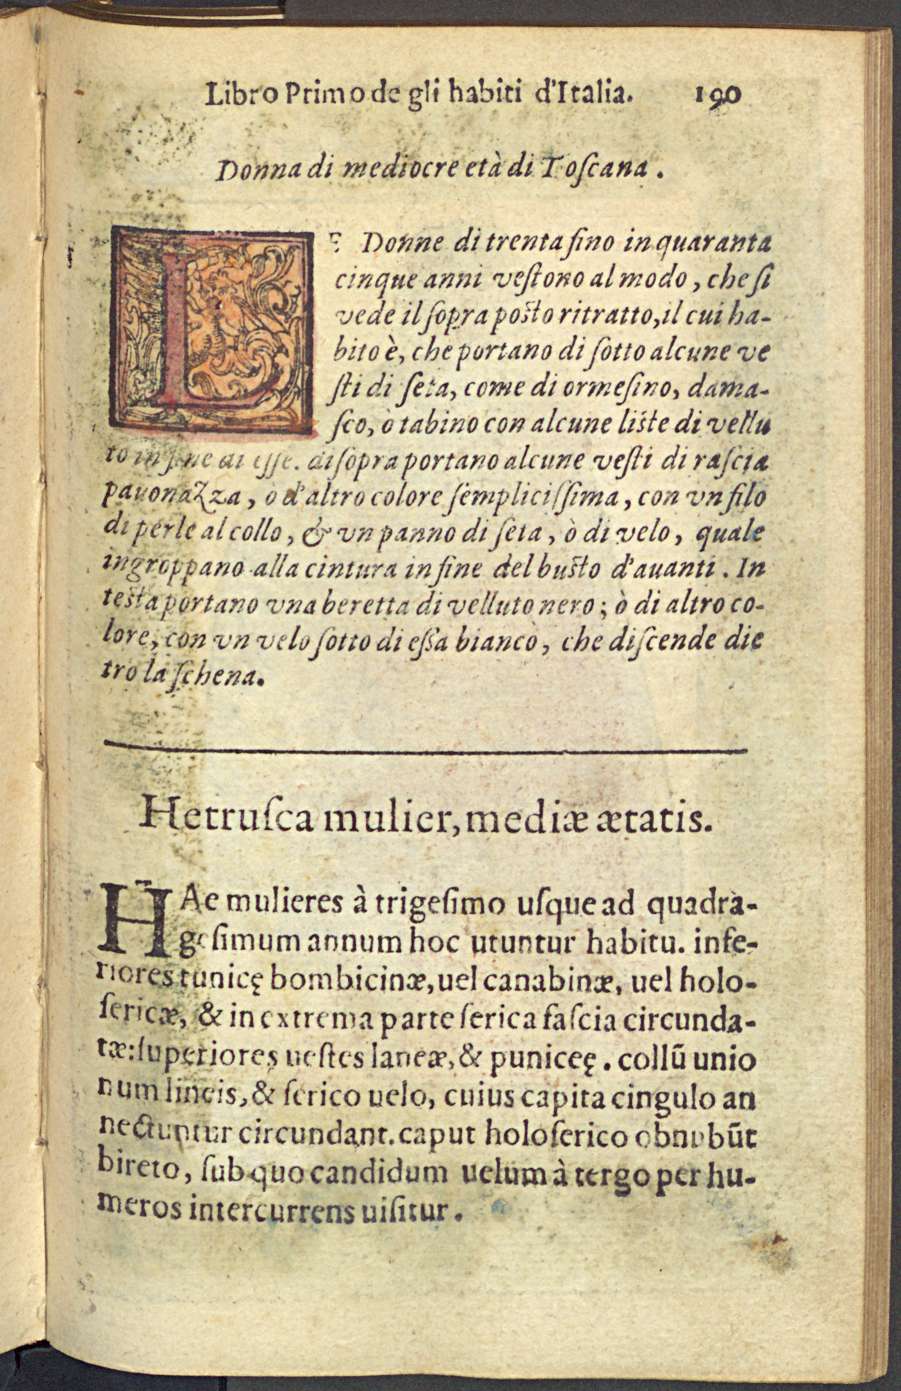 Libro Primo de gli habiti d'Italia. 190
Donna di mediocre età di Toſcana.
LE Donne di trenta ſino in quaranta
cinque anni veſtono al modo, che ſi
vede il ſopra poſto ritratto, il cui ha-
bito è, che portano di ſotto alcune ve
ſti di ſeta, come di ormeſino, dama-
ſco, ò tabino con alcune liſte di vellu
to in fine di eſſe. di ſopra portano alcune veſti di raſcia
pauonazza, ò d'altro colore ſempliciſſima, con vn filo
di perle al collo, & vn panno di ſeta, ò di velo, quale
ingroppano alla cintura in fine del buſto d'auanti. In
teſta portano vna beretta di velluto nero; ò di altro co-
lore, con vn velo ſotto di eſſa biancò, che diſcende die
tro la ſchena.
Hetruſca mulier, mediæ ætatis.
HAe mulieres à trigeſimo uſque ad quadra-
geſimum annum hoc utuntur habitu. infe-
riores tunicę bombicinæ, uel canabinæ, uel holo-
ſericæ, & in extrema parte ſerica faſcia circunda-
tæ: ſuperiores ueſtes laneæ, & puniceę. collū unio
num lineis, & ſerico uelo, cuius capita cingulo an
nectuntur circundant. caput holoſerico obnubūt
bireto, ſub quo candidum uelum à tergo per hu-
meros intercurrens uiſitur.